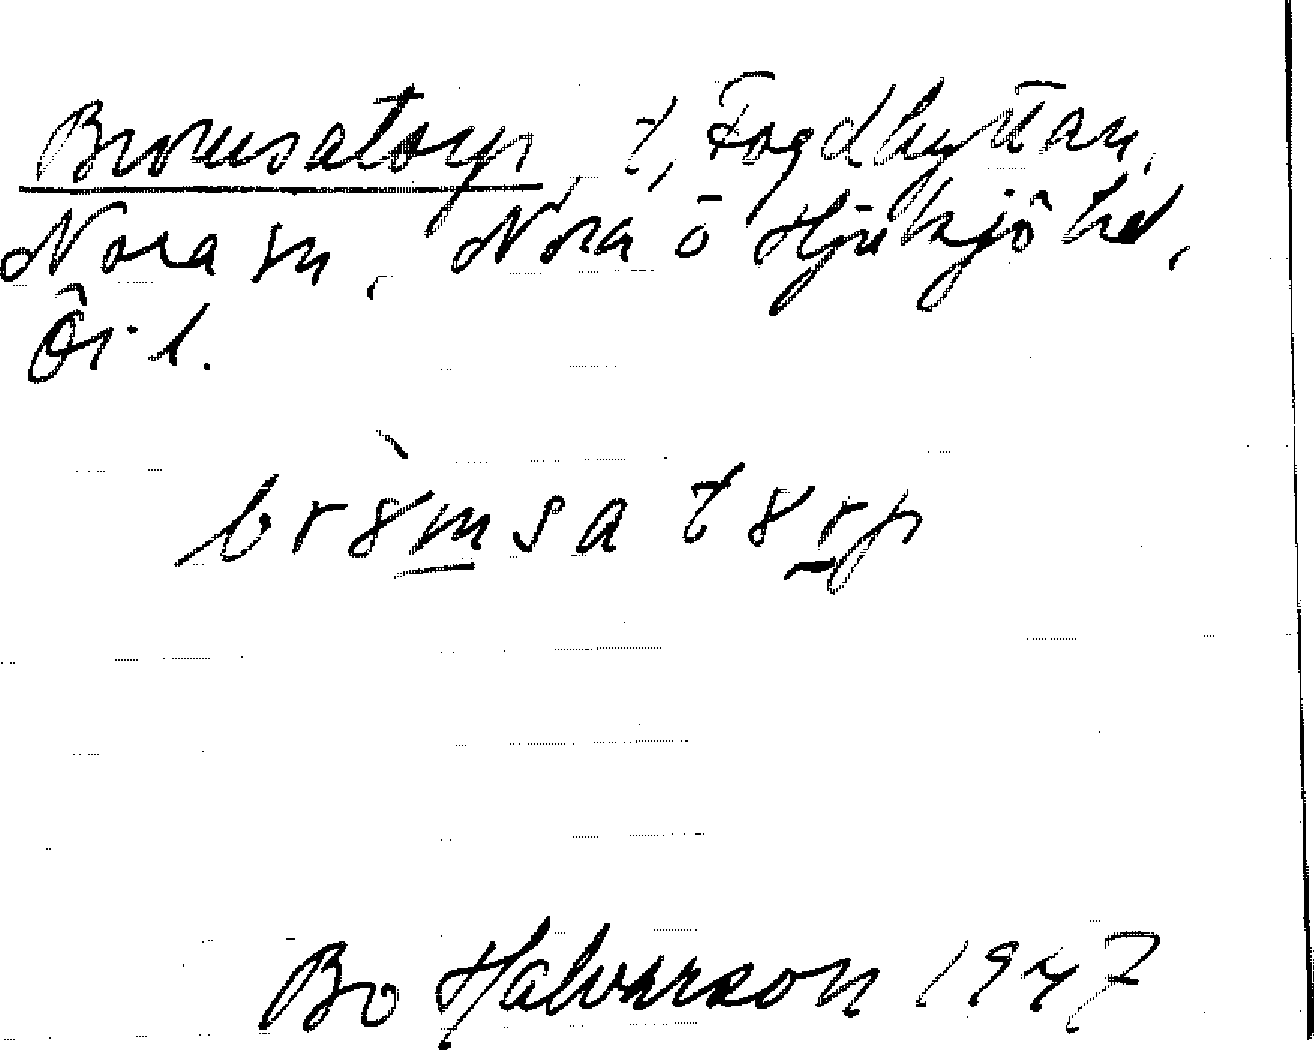 Bromsatorp, t, Fogdhyttan,
Nora sn, Nora o Hjulsjö hd,
Ör. l.
br8msa t8rp
Bo Halvarson 1947